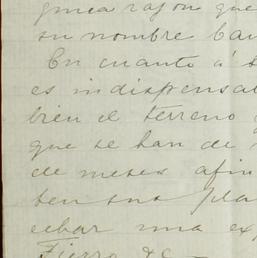 razon que
su nombre
En cuanto á
es indispensa
bien el terreno
que se han de
de meses afin
ten sus pla
echar una ex
Fierro &c